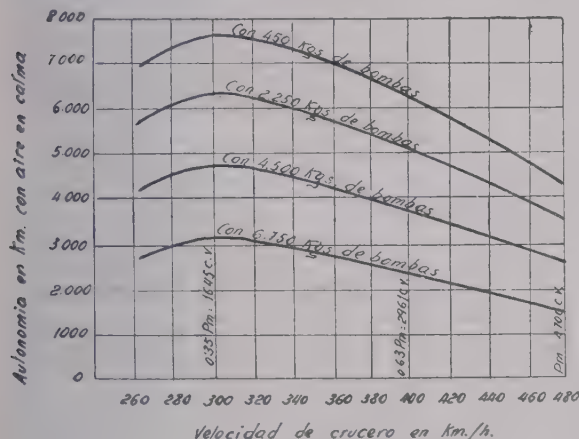 Autonomia en Km. con aire en calma
8000
7000
6.000
5000
4000
3000
2.000
1000
0
Con 450 Kgs de bombas
Con 2.250 Kgs de bombas
Con 4,500 Kgs de bombas
Con 6.750 Kgs de bombas
0.35 Pm: 1645 C.V.
0.63 Pm: 2961 C.V.
Pm: 4700 C.V.
260 280 300 320 340 360 380 400 420 440 460 480
Velocidad de crucero en Km./h.